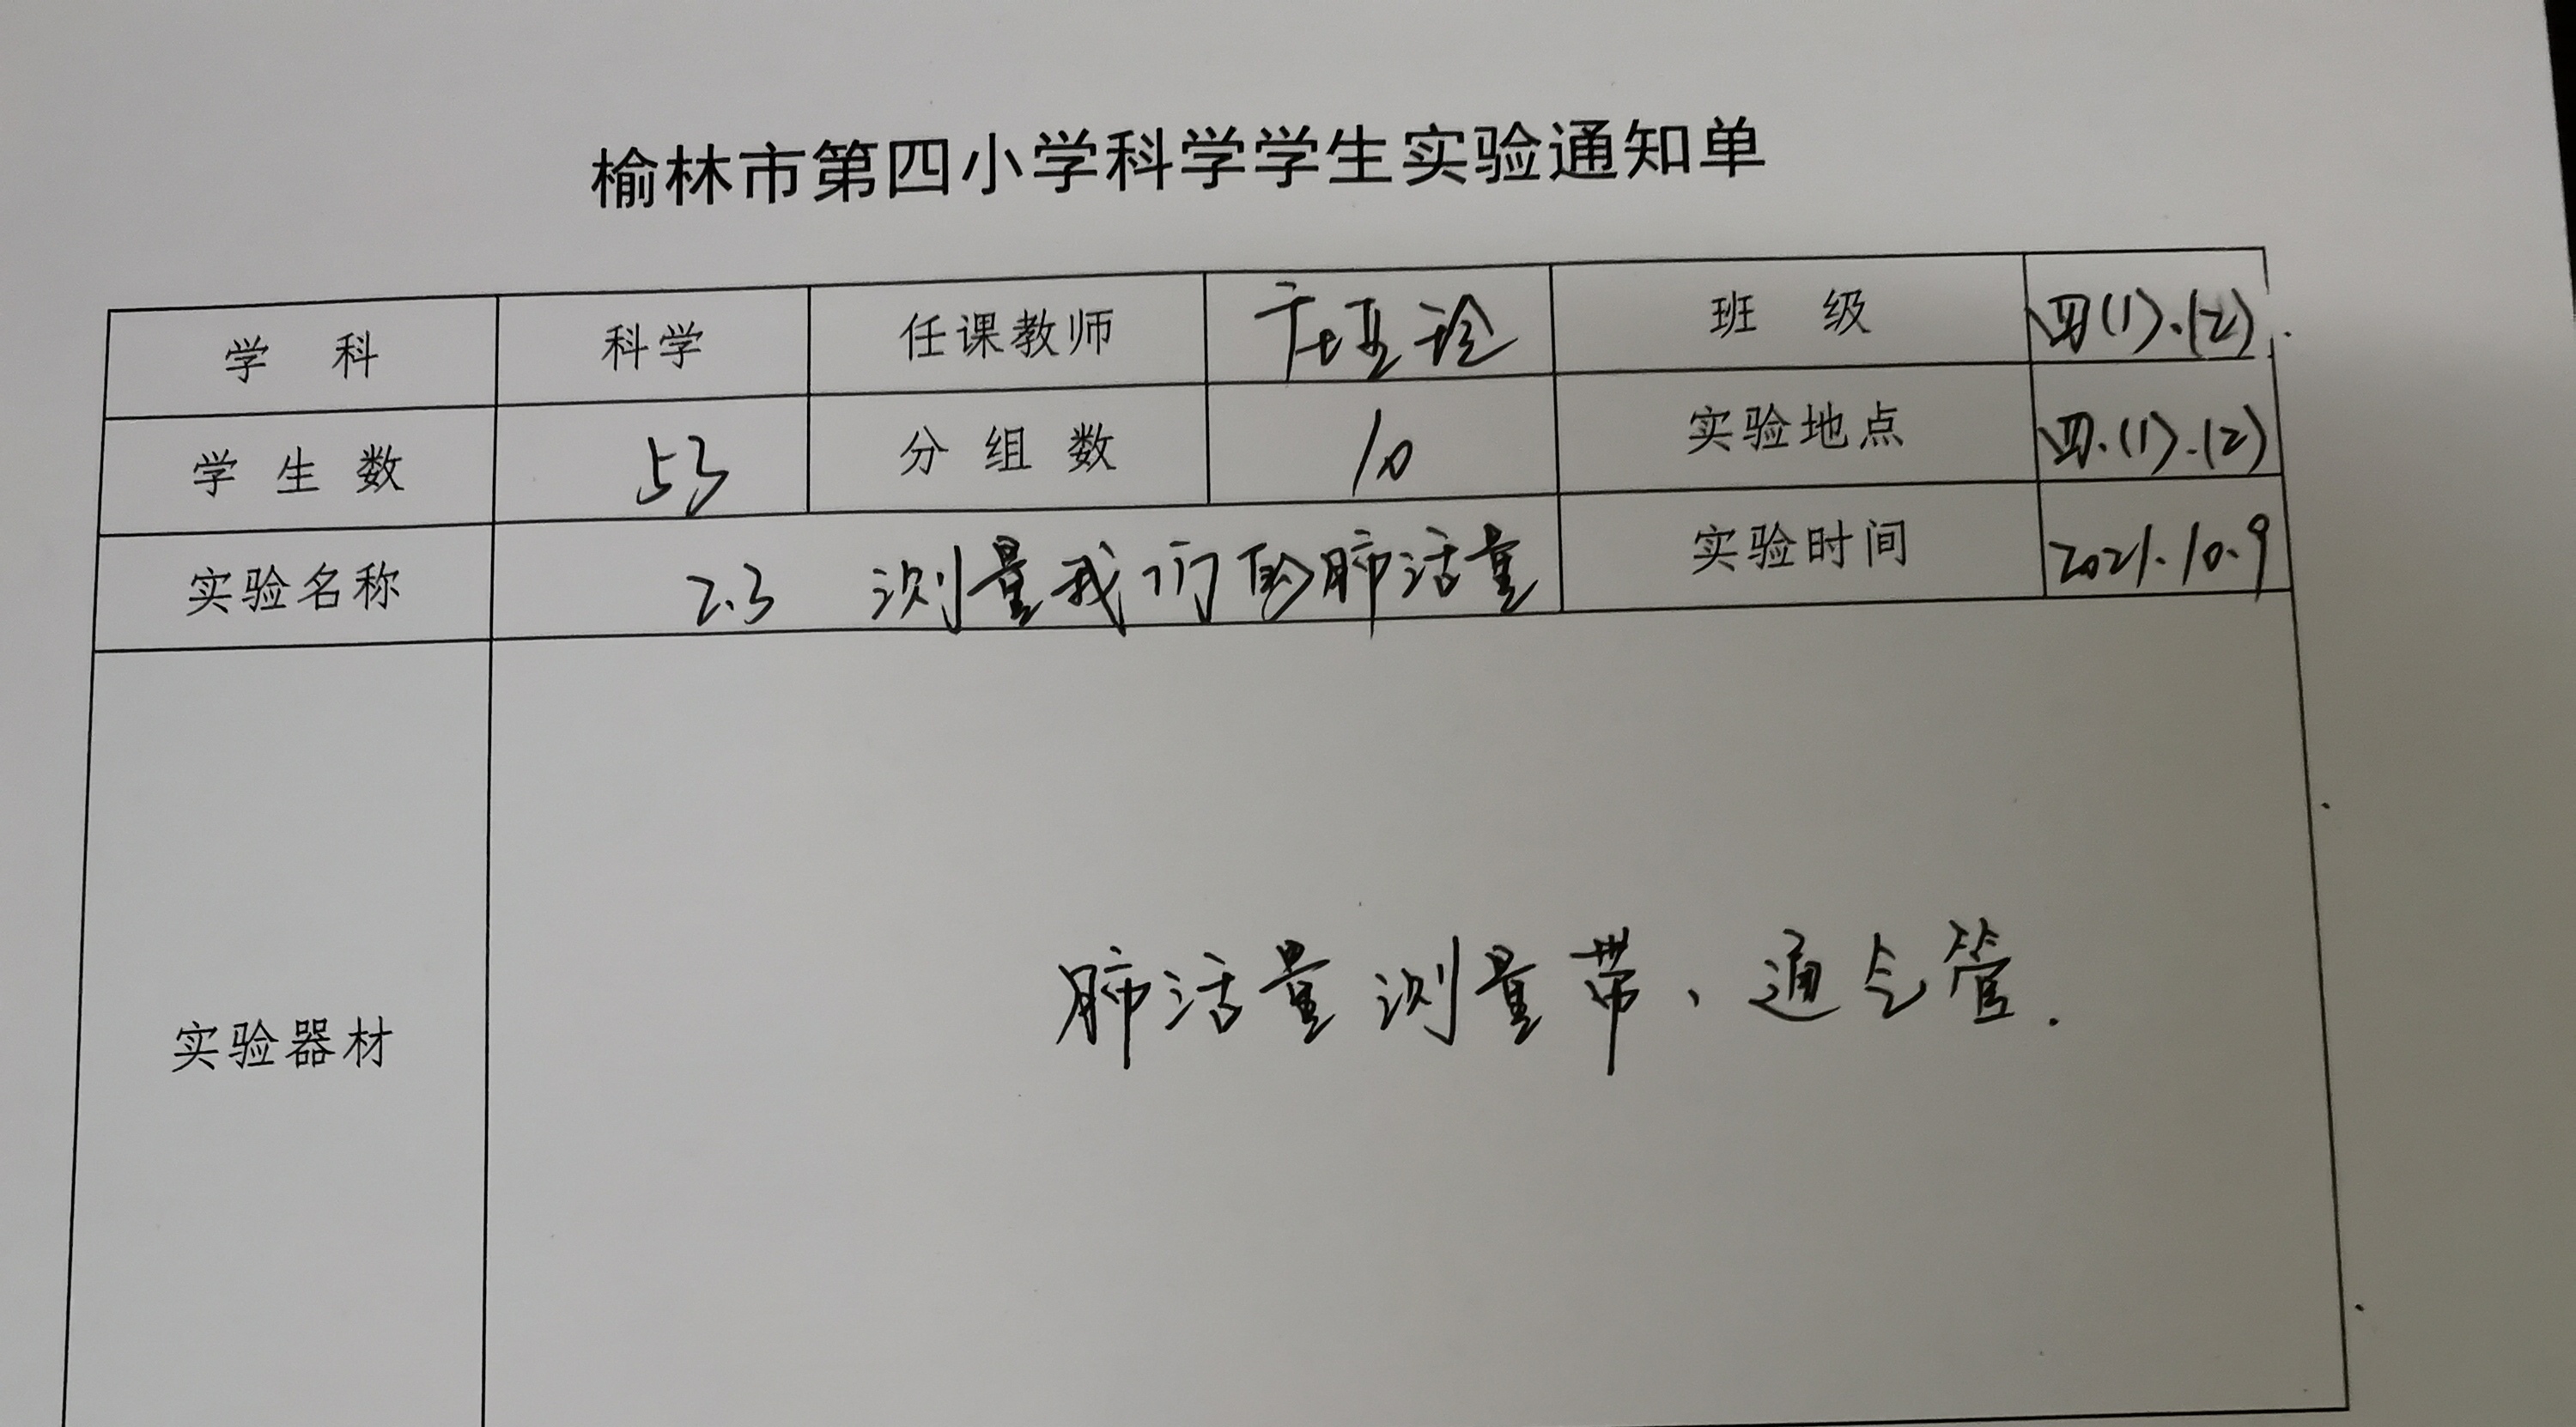 榆林市第四小学科学学生实验通知单
学 科 科学 任课教师 班 级 四(1).(2).
学 生 数 53 分 组 数 10 实验地点 四.(1).(2)
实验名称 2.3 测量我们的肺活量 实验时间 2021.10.9
实验器材 肺活量测量带、通气管.